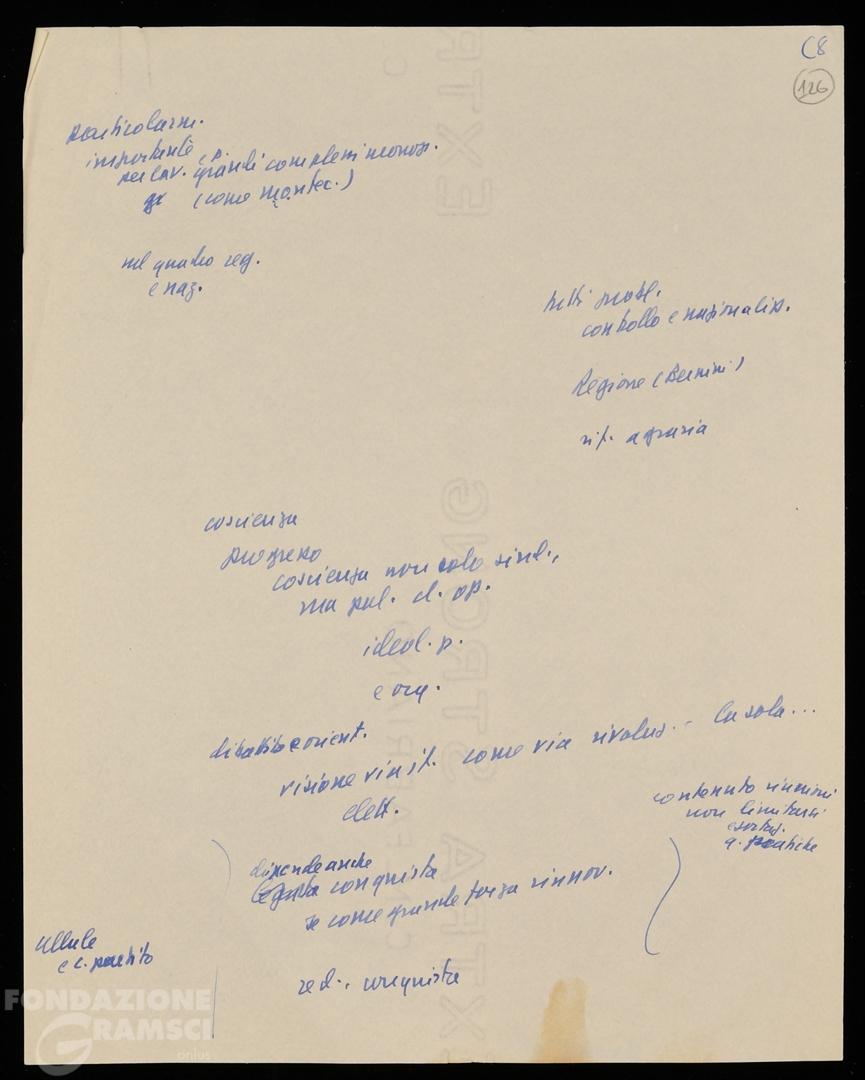 C8
126
particolarm.
importante
per lav. grandi complessi monop.
(come Montec.)
nel quadro reg.
e naz.
tutti probl.
controllo e nazionaliz.
Regione (Bernini)
rif. agraria
coscienza
progresso
coscienza non solo sind.,
ma pol. d. op.
ideol. p.
e org.
dibattito orient.
visione via it. come via rivoluz. - la sola...
elett.
contenuto riunioni
non limitarsi
esortaz.
q. pratiche
dipende anche
conquista
se come grande forza rinnov.
cellule
e c. partito
red., conquista
FONDAZIONE
GRAMSCI
onlus
EXTRA STRONG